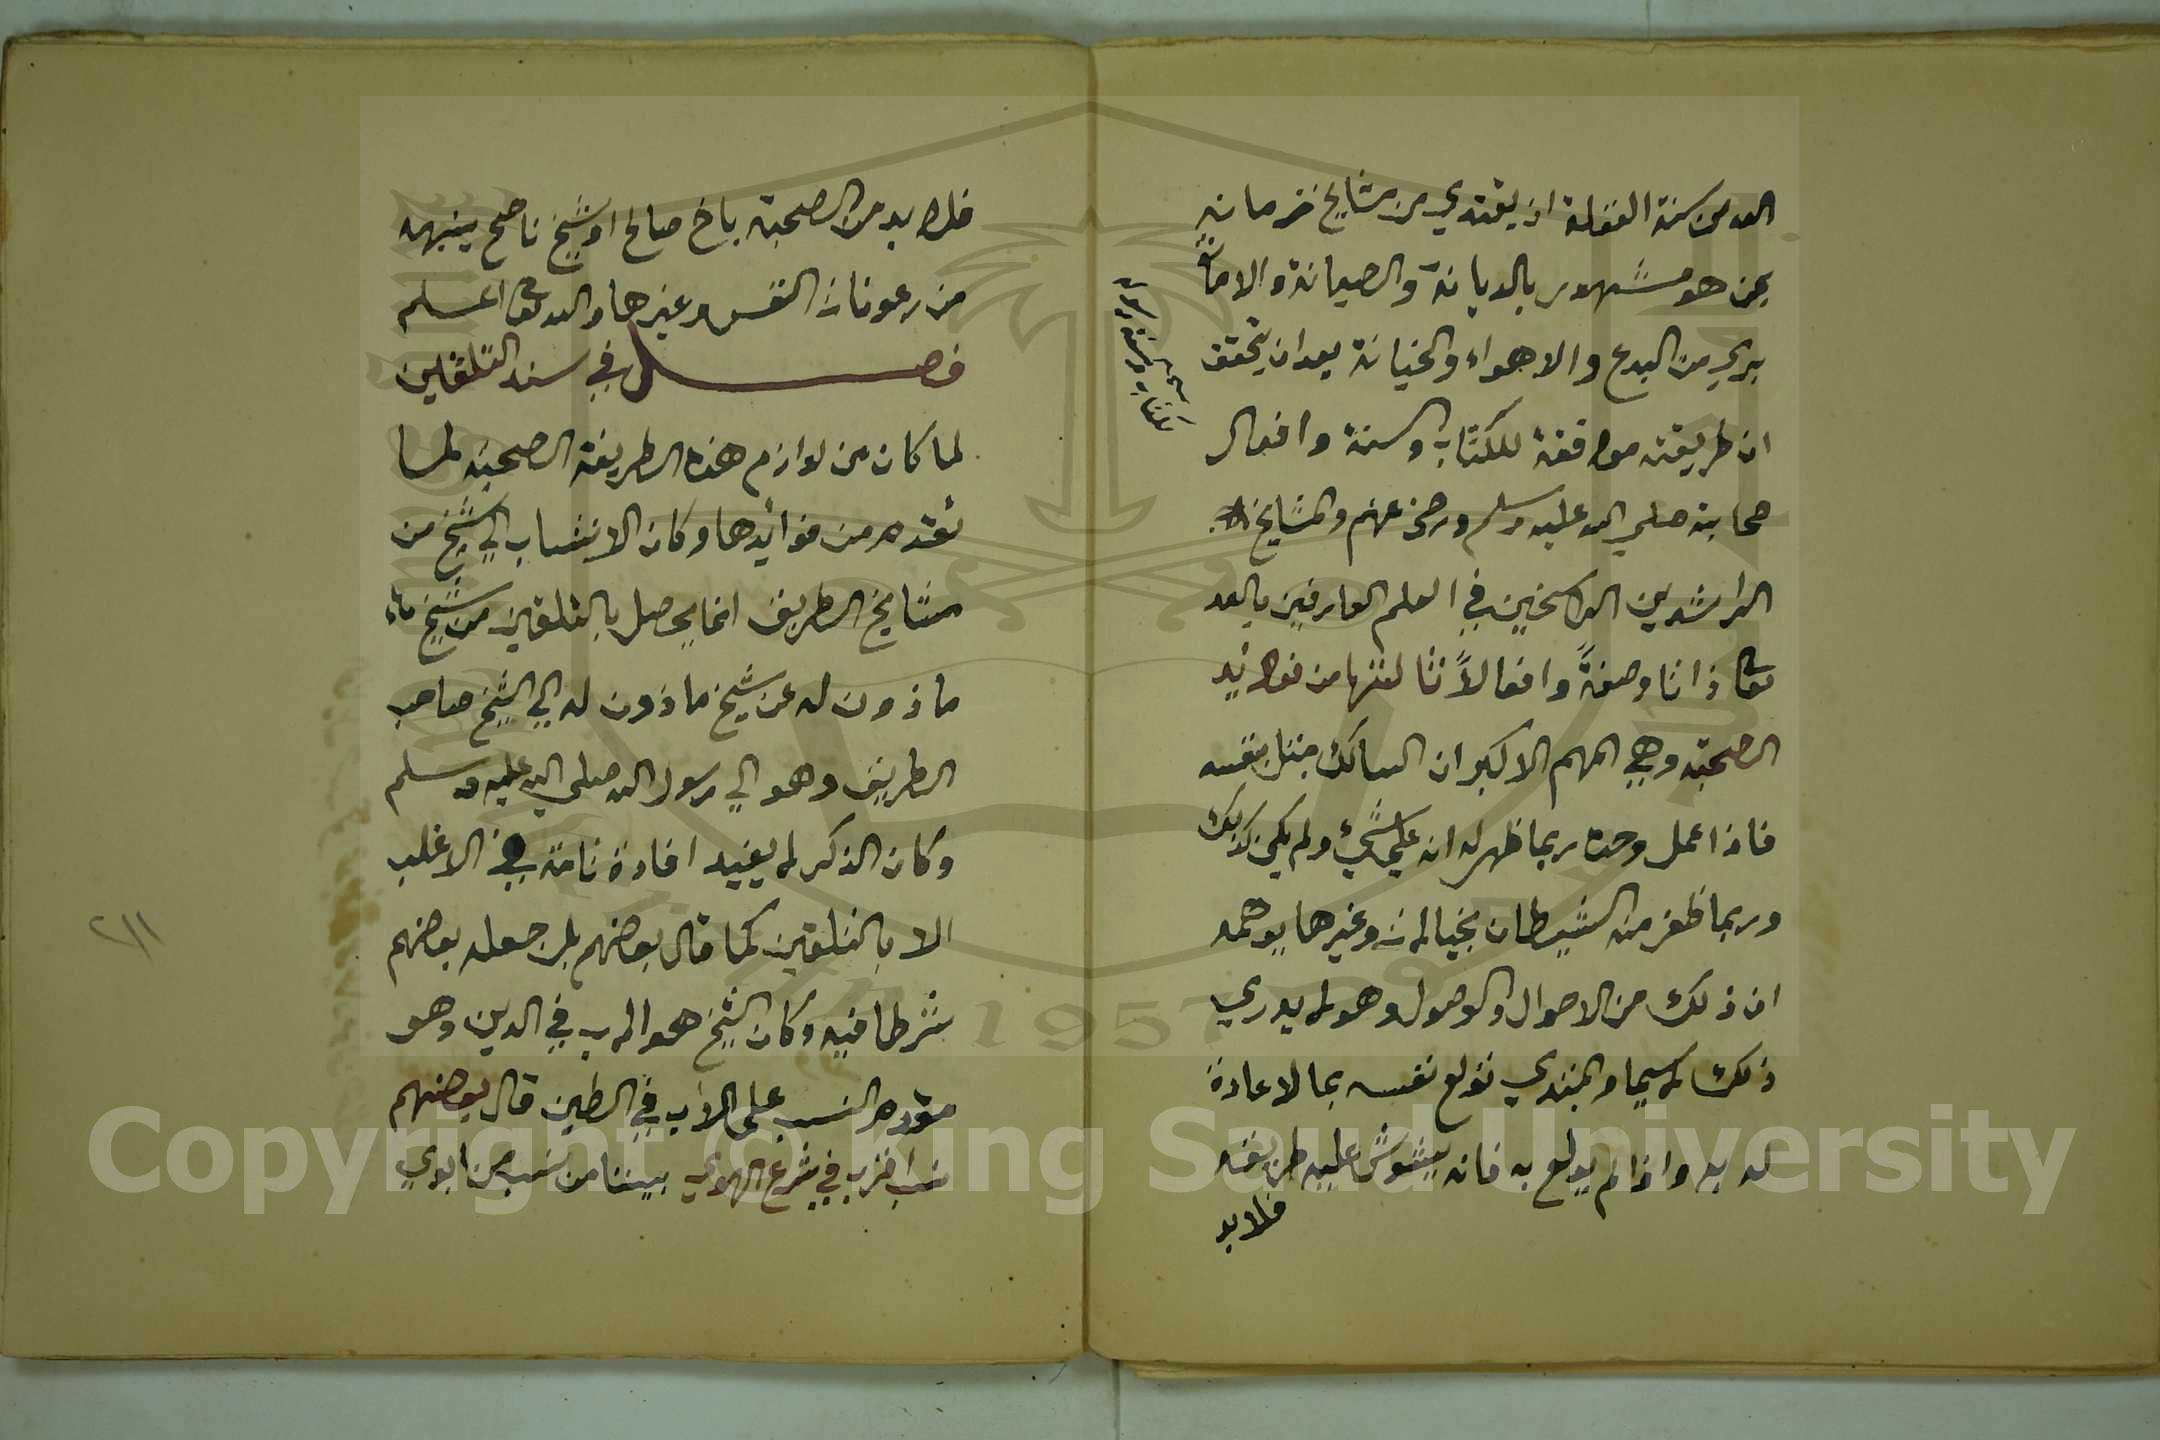 الله من سنة الغفلة ان يقتدي من مشايخ زمانه
بمن هو مشهور بالديانة والصيانة والامانة
بري من البدع والاهواء والخيانة بعد ان يتحقق
ان طريقته موافقة للكتاب والسنة وافعال
صحابته صلي الله عليه وسلم ورضي عنهم والمشايخ
الراشدين الراسخين في العلم العارفين بالله
تعالى ذاتا وصفةً وافعالاً ثالثها من فوائد
الصحبة وهي المهم الاكبر ان السالك بنفسه
فاذا عمل وحده ربما ظهر له انه علي شيء ولم يكن كذلك
وربما ظفر منه الشيطان بخيالات وغيرها يوهمه
ان ذلك من الاحوال والوصول وهو لا يدري
ذلك لا سيما والمبتدي تولع نفسه بما لا عادة
له به واذا لم يولع به فانه يشوش عليه طريقه
فلا بد
فلا بد من الصحبة باخ صالح او شيخ ناصح ينبهه
من رعونات النفس وغيرها والله تعالى اعلم
فصل في سند التلقين
لما كان من لوازم هذه الطريقة الصحبة لما
تقدم من فوائدها وكان الانتساب الي شيخ من
مشايخ الطريق انما يحصل بالتلقين من شيخ
ماذون له عن شيخ ماذون له الي الشيخ صاحب
الطريق وهو الي رسول الله صلى الله عليه وسلم
وكان الذكر لا يفيد افادة تامة في الاغلب
الا بالتلقين كما قال بعضهم بل جعله بعضهم
شرطا فيه وكان الشيخ هو الاب في الدين وهو
مقدم النسب على الاب في الطين قال بعضهم
نسب اقرب في شرع الهوي بيننا من نسب من ابوي
٢١١
Copyright © King Saud University
1957